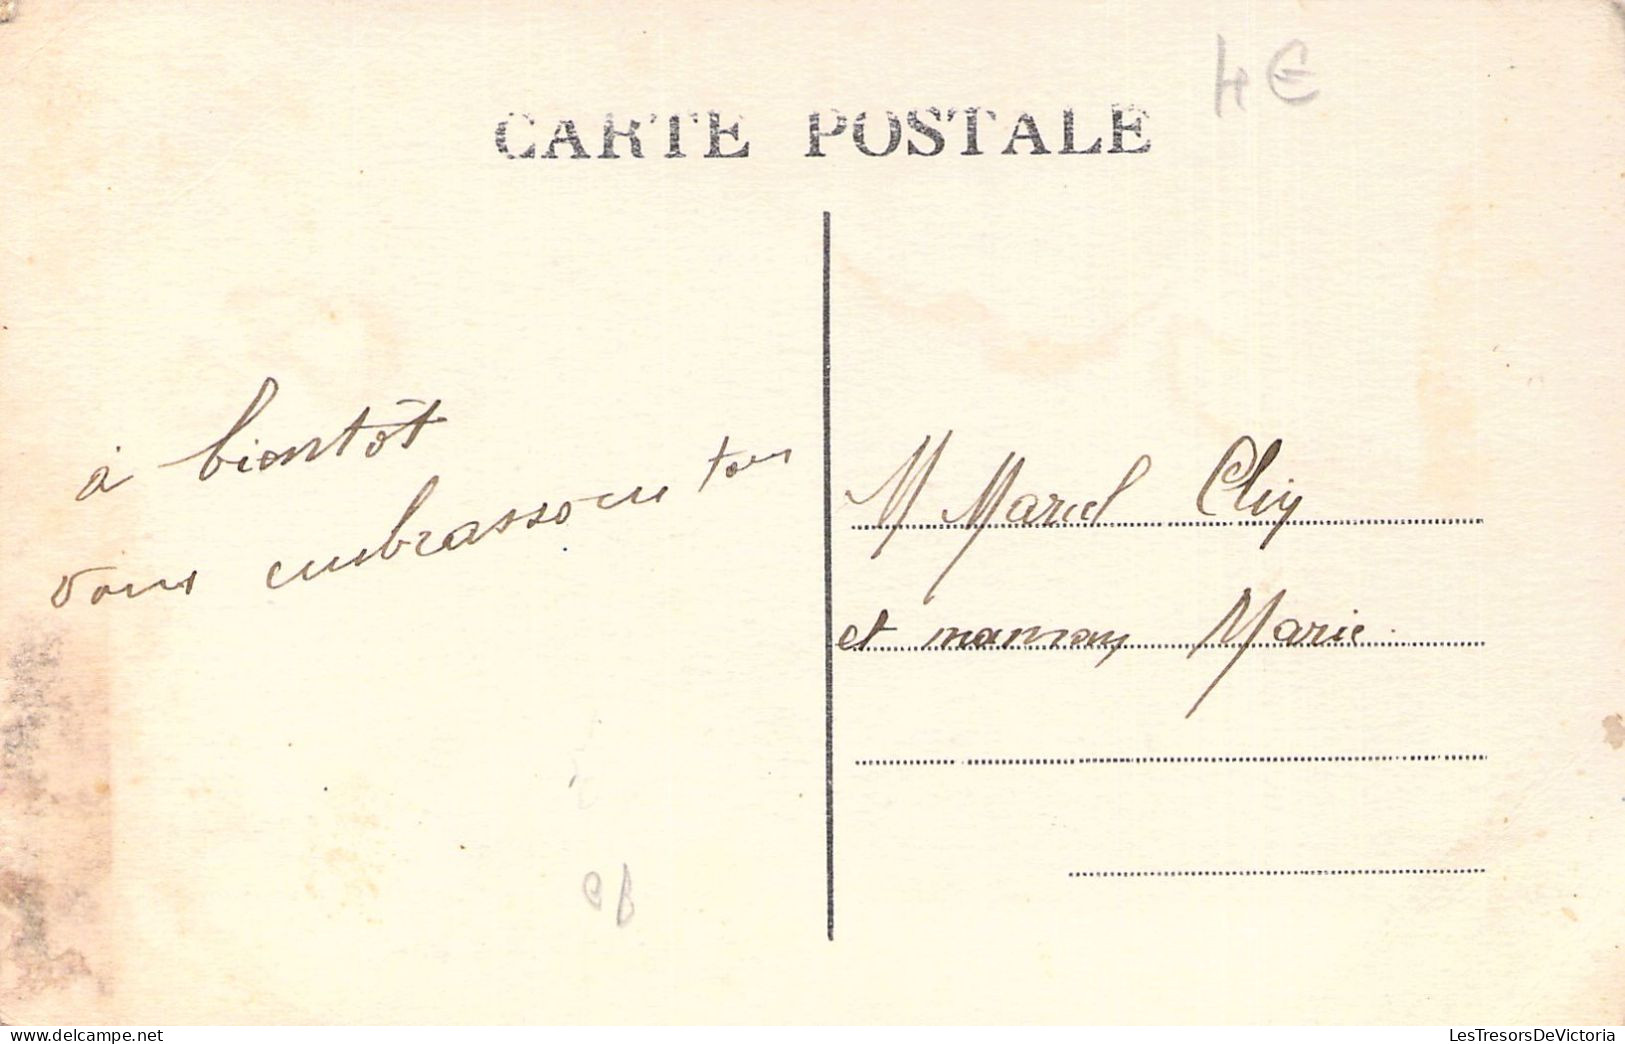 4 €
CARTE POSTALE
à bientôt
vous embrassons tous
M Marcel
et maman Marie.
delcampe.net
LesTresorsDeVictoria